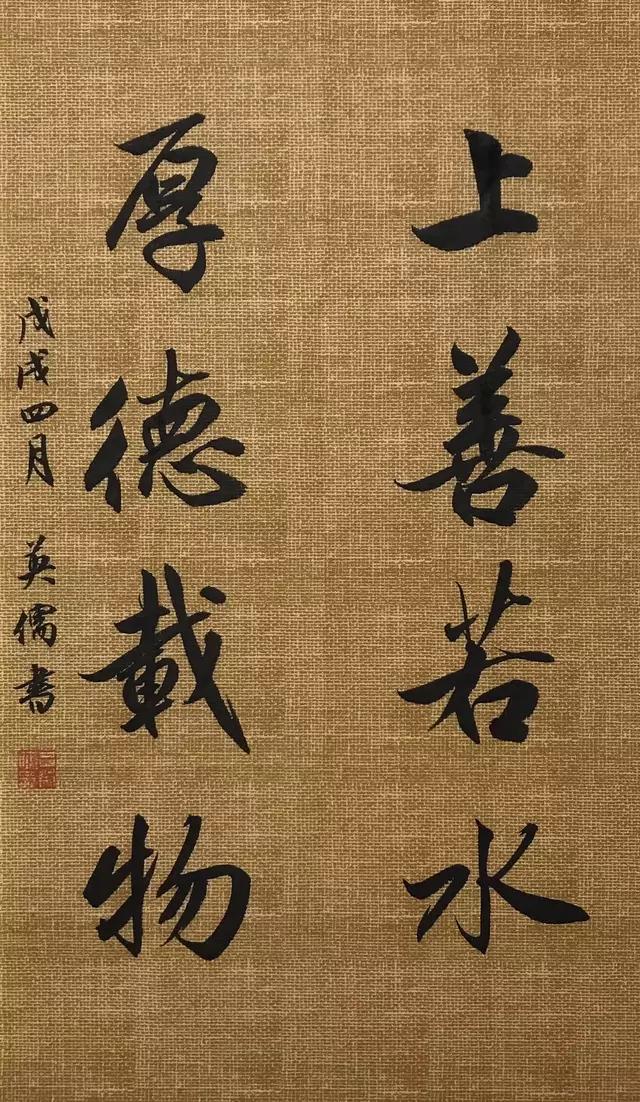 上善若水
厚德載物
戊戌四月 英儒書